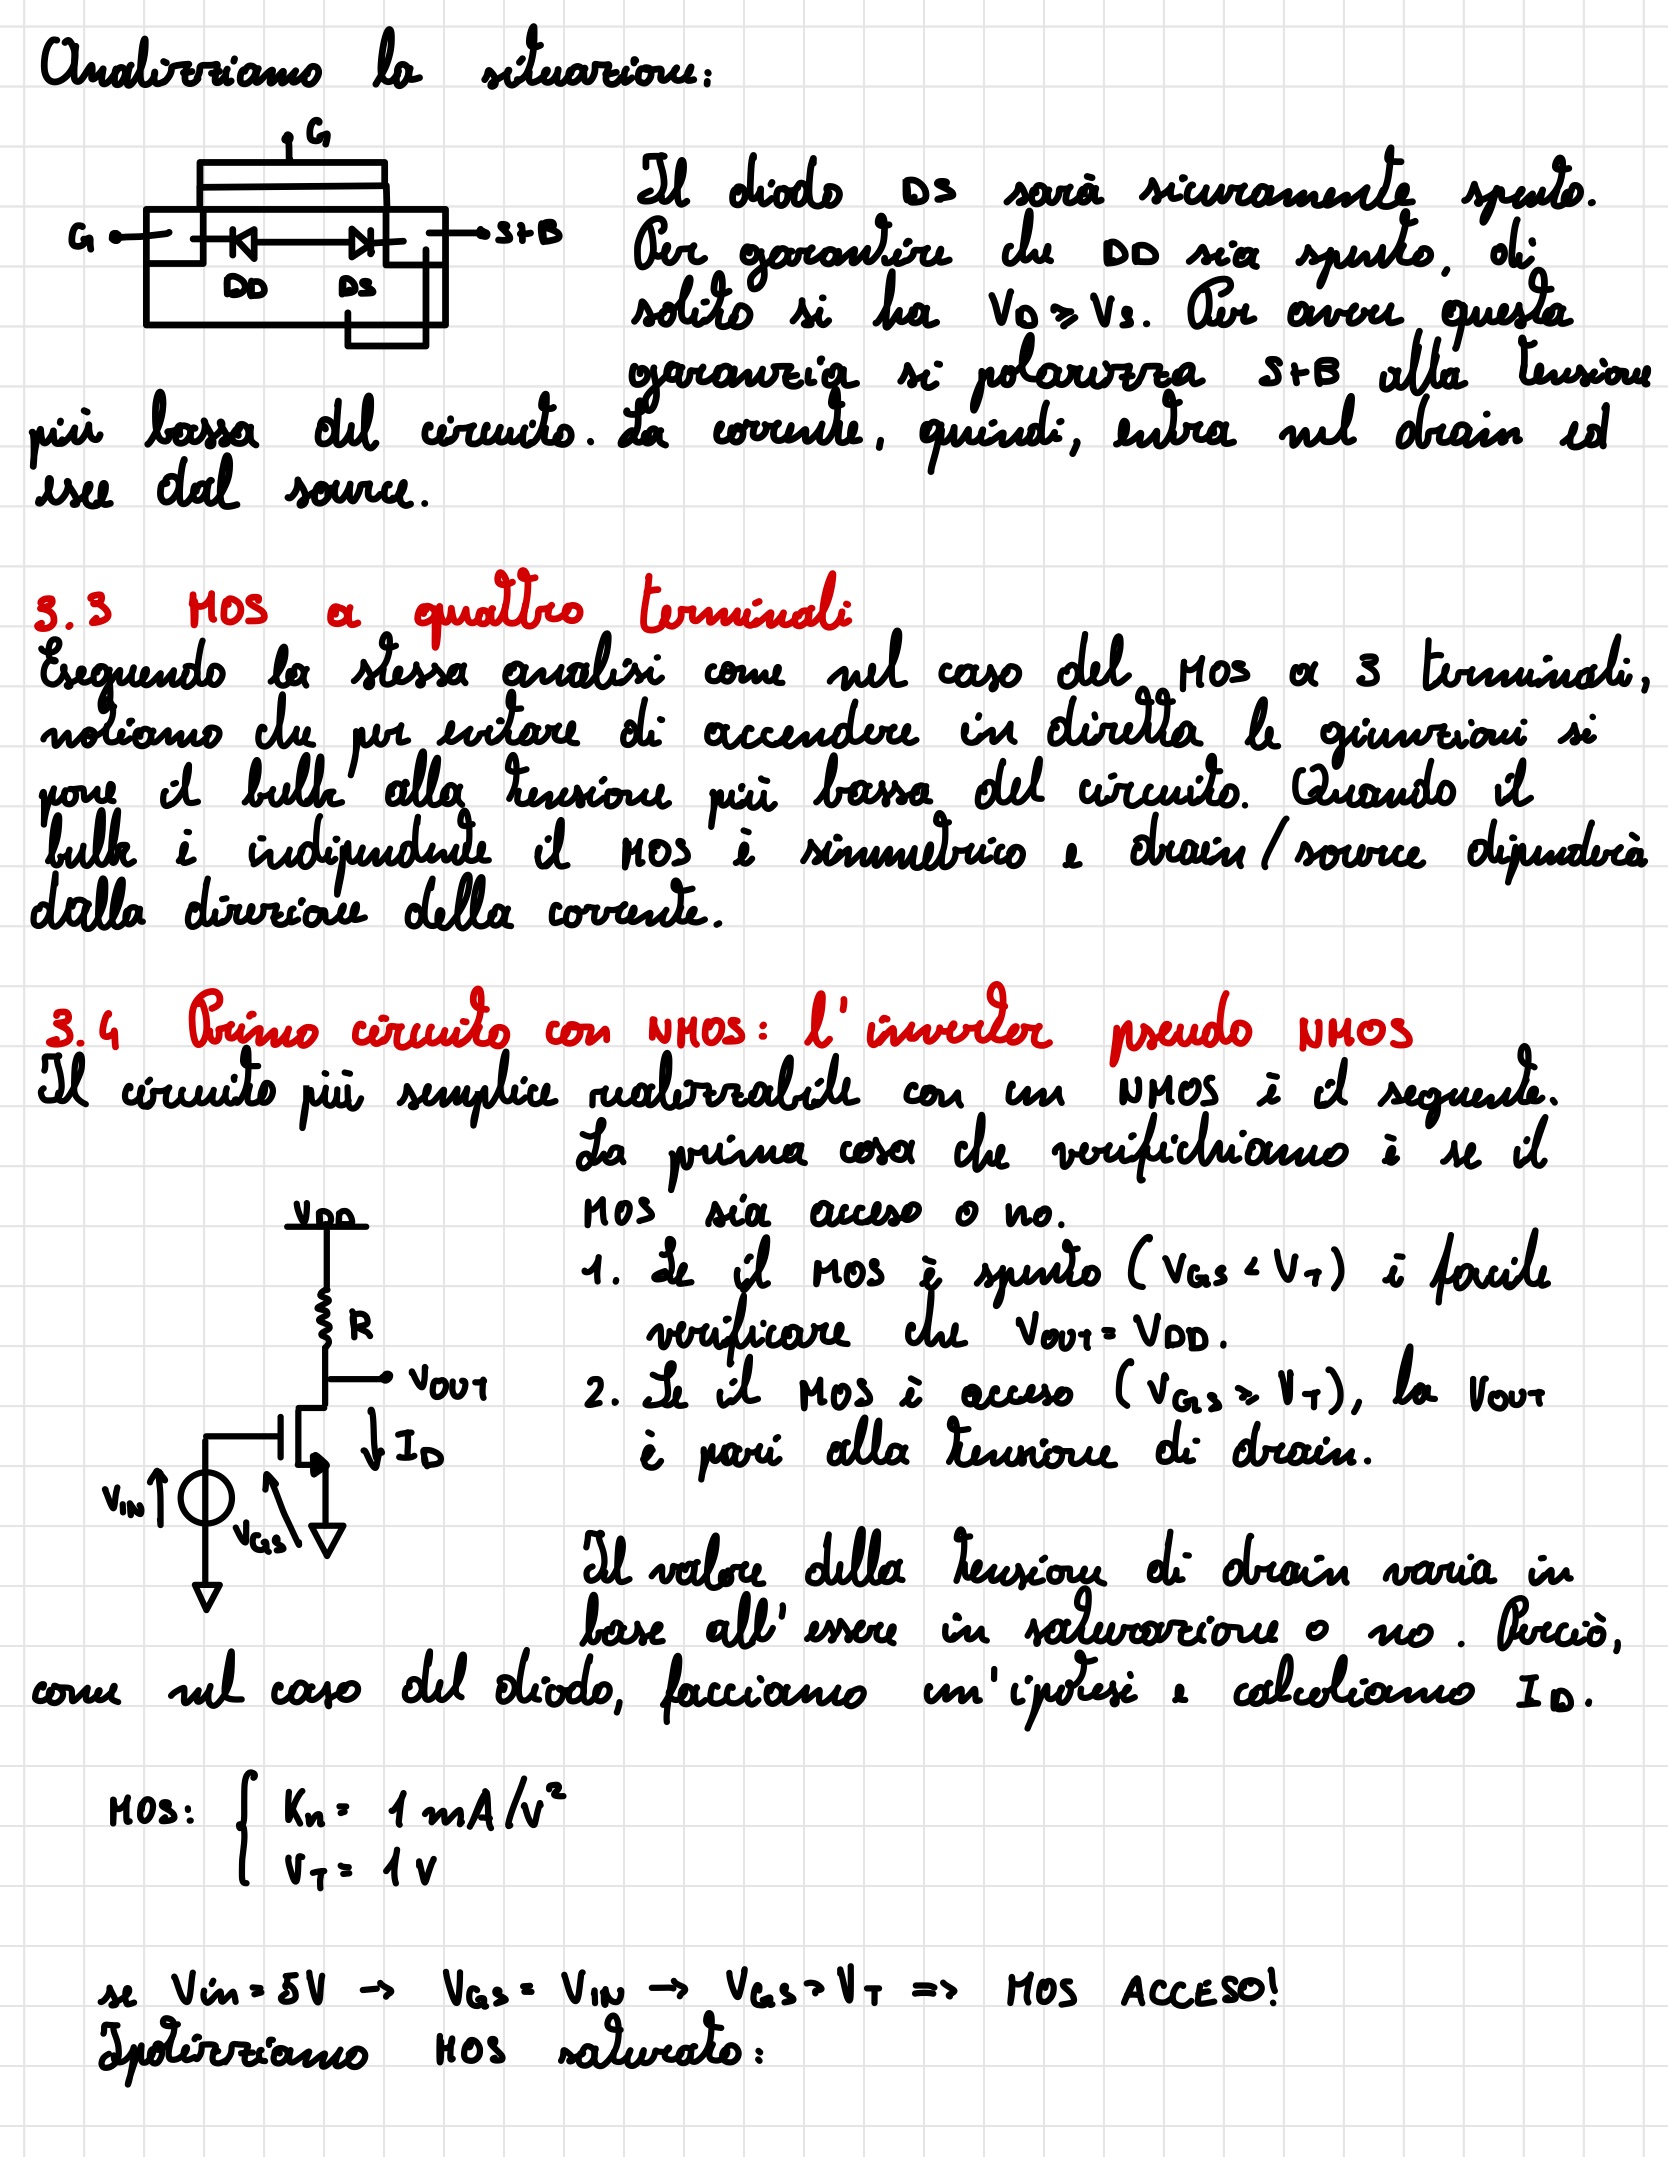 Analizziamo la situazione:
G
G
S+B
DD
DS
Il diodo DS sarà sicuramente spento.
Per garantire che DD sia spento, di
solito si ha VD ≥ VS. Per avere questa
garanzia si polarizza S+B alla tensione
più bassa del circuito. La corrente, quindi, entra nel drain ed
esce dal source.
3.3 MOS a quattro terminali
Eseguendo la stessa analisi come nel caso del MOS a 3 terminali,
notiamo che per evitare di accendere in diretta le giunzioni si
pone il bulk alla tensione più bassa del circuito. Quando il
bulk è indipendente il MOS è simmetrico e drain/source dipenderà
dalla direzione della corrente.
3.4 Primo circuito con NMOS: l'inverter pseudo NMOS
Il circuito più semplice realizzabile con un NMOS è il seguente.
La prima cosa che verifichiamo è se il
MOS sia acceso o no.
1. Se il MOS è spento (VGS < VT) è facile
verificare che VOUT = VDD.
2. Se il MOS è acceso (VGS ≥ VT), la VOUT
è pari alla tensione di drain.
VDD
R
VOUT
ID
VIN
VGS
Il valore della tensione di drain varia in
base all'essere in saturazione o no. Perciò,
come nel caso del diodo, facciamo un'ipotesi e calcoliamo ID.
MOS: { Kn = 1 mA/V²
VT = 1 V
se Vin = 5V → VGS = VIN → VGS > VT => MOS ACCESO!
Ipotizziamo MOS saturato: